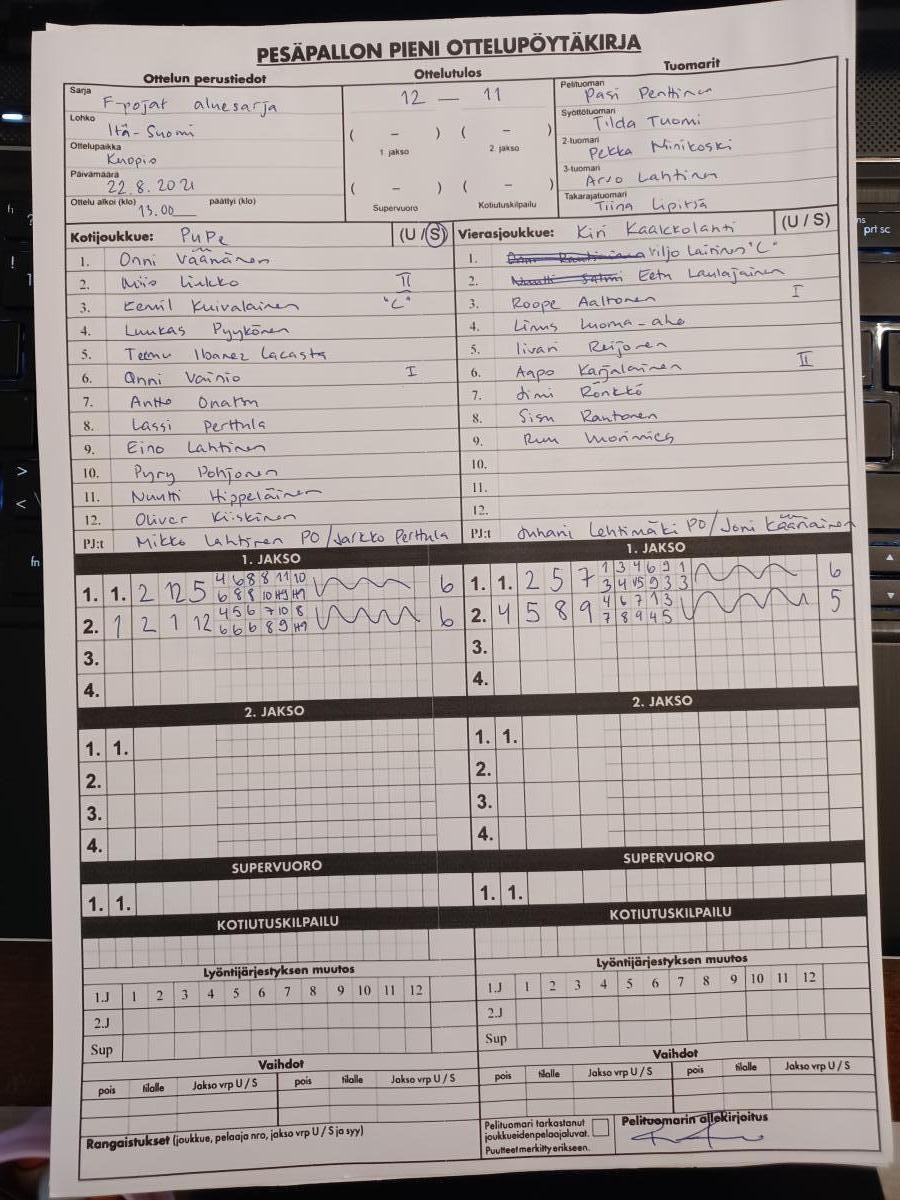 PESÄPALLON PIENI OTTELUPÖYTÄKIRJA
Ottelun perustiedot
Sarja
F-pojat aluesarja
Lohko
Itä-Suomi
Ottelupaikka
Kuopio
Päivämäärä
22.8.2021
Ottelu alkoi (klo) 15.00 päättyi (klo)
Ottelutulos
12 — 11
( – ) ( – )
1. jakso 2. jakso
( – ) ( – )
Supervuoro Kotiutuskilpailu
Tuomarit
Pelituomari
Pasi Penttinen
Syöttötuomari
Tilda Tuomi
2-tuomari
Pekka Minikoski
3-tuomari
Arvo Lahtinen
Takarajatuomari
Tiina Lipitsä
Kotijoukkue: PuPe (U / S)
1. Onni Väänänen
2. Miio Liukko II
3. Eemil Kuivalainen "C"
4. Luukas Pyykönen
5. Teemu Ibanez Lacasta
6. Onni Vainio I
7. Antto
8. Lassi Perttula
9. Eino Lahtinen
10. Pyry Pohjonen
11. Nuutti Hippeläinen
12. Oliver Kiiskinen
PJ:t Mikko Lahtinen PO / Jarkko Perttula
Vierasjoukkue: Kiri Kaakkolahti (U / S)
1. Viljo Laitinen "C"
2. Eetu Laulajainen
3. Roope Aaltonen I
4. Linus Luoma-aho
5. Iivari Reijonen
6. Aapo Karjalainen II
7. Jimi Rönkkö
8. Sisu Rautonen
9.
10.
11.
12.
PJ:t Juhani Lehtimäki PO / Joni Kääriäinen
1. JAKSO
1. 1. 2 12 5 4 6 8 8 11 10 6
6 8 8 10
2. 1 2 1 12 4 5 6 7 10 8 6
6 6 6 8 9
3.
4.
1. JAKSO
1. 1. 2 5 7 1 3 4 6 9 1 6
3 4 9 3 3
2. 4 5 8 9 4 6 7 1 3 5
7 8 9 4 5
3.
4.
2. JAKSO
1. 1.
2.
3.
4.
2. JAKSO
1. 1.
2.
3.
4.
SUPERVUORO
1. 1.
SUPERVUORO
1. 1.
KOTIUTUSKILPAILU
KOTIUTUSKILPAILU
Lyöntijärjestyksen muutos
1.J 1 2 3 4 5 6 7 8 9 10 11 12
2.J
Sup
Lyöntijärjestyksen muutos
1.J 1 2 3 4 5 6 7 8 9 10 11 12
2.J
Sup
Vaihdot
pois tilalle Jakso vrp U / S pois tilalle Jakso vrp U / S
Vaihdot
pois tilalle Jakso vrp U / S pois tilalle Jakso vrp U / S
Rangaistukset (joukkue, pelaaja nro, jakso vrp U / S ja syy)
Pelituomari tarkastanut
joukkueiden pelaajaluvat.
Puutteet merkitty erikseen.
Pelituomarin allekirjoitus